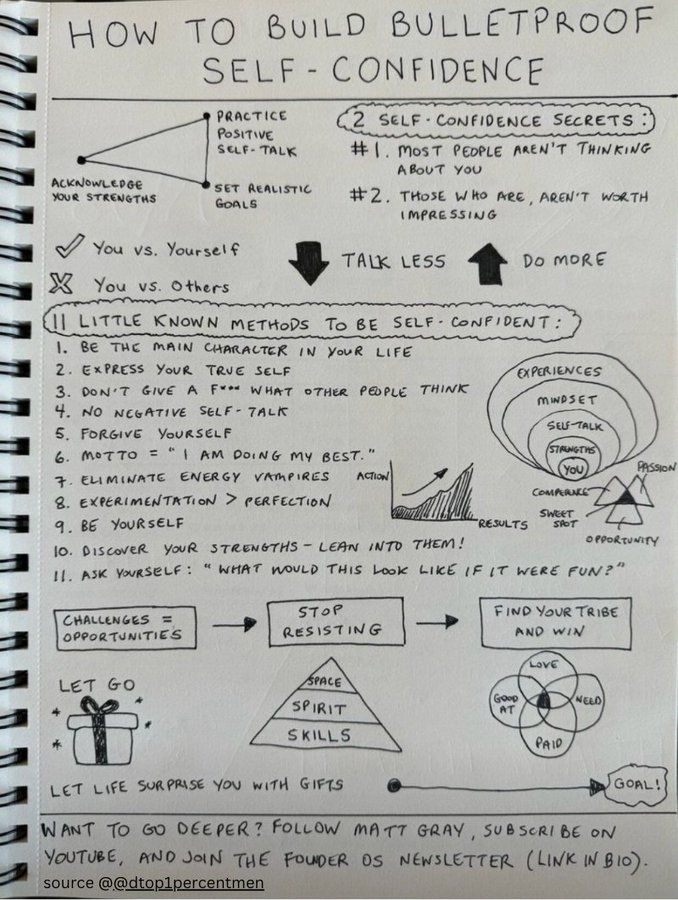 HOW TO BUILD BULLETPROOF
SELF-CONFIDENCE
PRACTICE
POSITIVE
SELF-TALK
ACKNOWLEDGE
YOUR STRENGTHS
SET REALISTIC
GOALS
2 SELF-CONFIDENCE SECRETS:
#1. MOST PEOPLE AREN'T THINKING
ABOUT YOU
#2. THOSE WHO ARE, AREN'T WORTH
IMPRESSING
You vs. Yourself
You vs. Others
TALK LESS
DO MORE
11 LITTLE KNOWN METHODS TO BE SELF-CONFIDENT:
1. BE THE MAIN CHARACTER IN YOUR LIFE
2. EXPRESS YOUR TRUE SELF
3. DON'T GIVE A F*** WHAT OTHER PEOPLE THINK
4. NO NEGATIVE SELF-TALK
5. FORGIVE YOURSELF
6. MOTTO = "I AM DOING MY BEST."
7. ELIMINATE ENERGY VAMPIRES
8. EXPERIMENTATION > PERFECTION
9. BE YOURSELF
10. DISCOVER YOUR STRENGTHS - LEAN INTO THEM!
11. ASK YOURSELF: "WHAT WOULD THIS LOOK LIKE IF IT WERE FUN?"
EXPERIENCES
MINDSET
SELF-TALK
STRENGTHS
YOU
ACTION
RESULTS
PASSION
SWEET
SPOT
OPPORTUNITY
CHALLENGES =
OPPORTUNITIES
STOP
RESISTING
FIND YOUR TRIBE
AND WIN
LET GO
SPACE
SPIRIT
SKILLS
LOVE
GOOD
AT
NEED
PAID
LET LIFE SURPRISE YOU WITH GIFTS
GOAL!
WANT TO GO DEEPER? FOLLOW MATT GRAY, SUBSCRIBE ON
YOUTUBE, AND JOIN THE FOUNDER OS NEWSLETTER (LINK IN BIO).
source @@dtop1percentmen